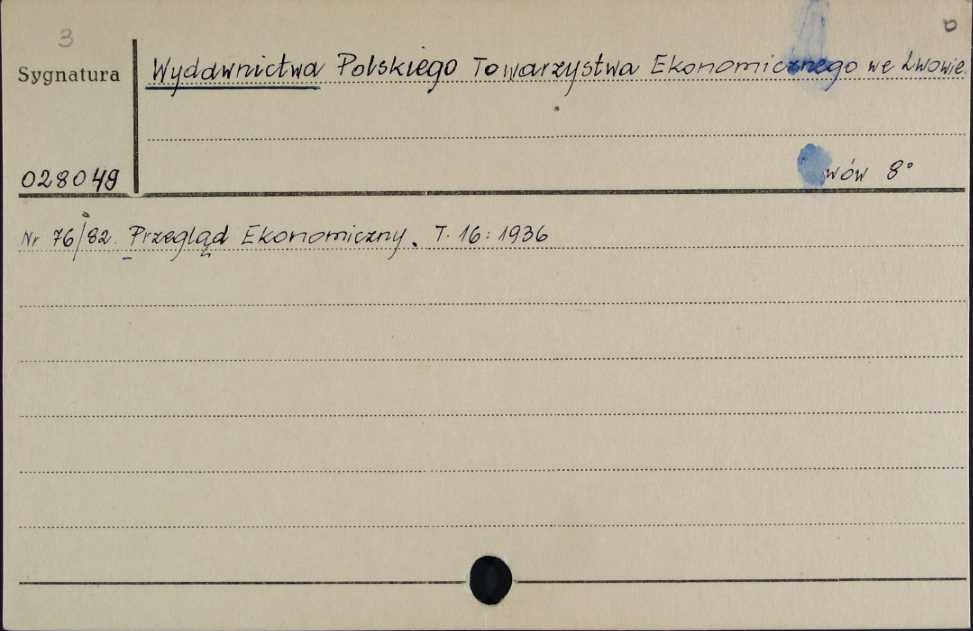 3
Sygnatura
Wydawnictwa Polskiego Towarzystwa Ekonomicznego we Lwowie.
028049
wów 8°
Nr 76/82. Przegląd Ekonomiczny. T. 16: 1936